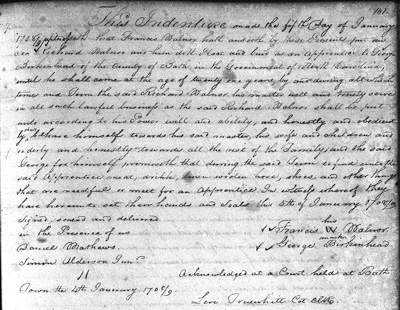 101.
This Indenture made the fifth Day of January
1708/9 Witnesseth that Francis Malnor hath and doth by these Presents put
Richard Malnor and him doth Place and bind as an Apprentice to George
Birkenhead of the County of Bath in the Government of North Carolina,
until he shall come at the age of twenty one years, by and during all which
time and Term the said Richard Malnor his master well and truely serve
in all such lawful business as the said Richard Malnor shall be put
unto according to his Power will and ability, and honestly and obedient
ly behave himself towards his said master, his wife and children and
orderly and honestly towards all the rest of the Family, and the said
George for himself promiseth that during the said Term to find unto the
said Apprentice meat, drink, linen woolen hose, shoes and other things
that are needful or meet for an Apprentice In witness whereof they
have hereunto set their hands and Seals this 5th of January 1708/9
Signed, sealed and delivered
in the Presence of us
Daniel Mathews.
Simon Alderson Junr.
his
Francis W Malnor
mark
George Birkenhead
Acknowledged at a Court held at Bath
Town the 4th January 1708/9
Levi Truewhitt Cot Clk